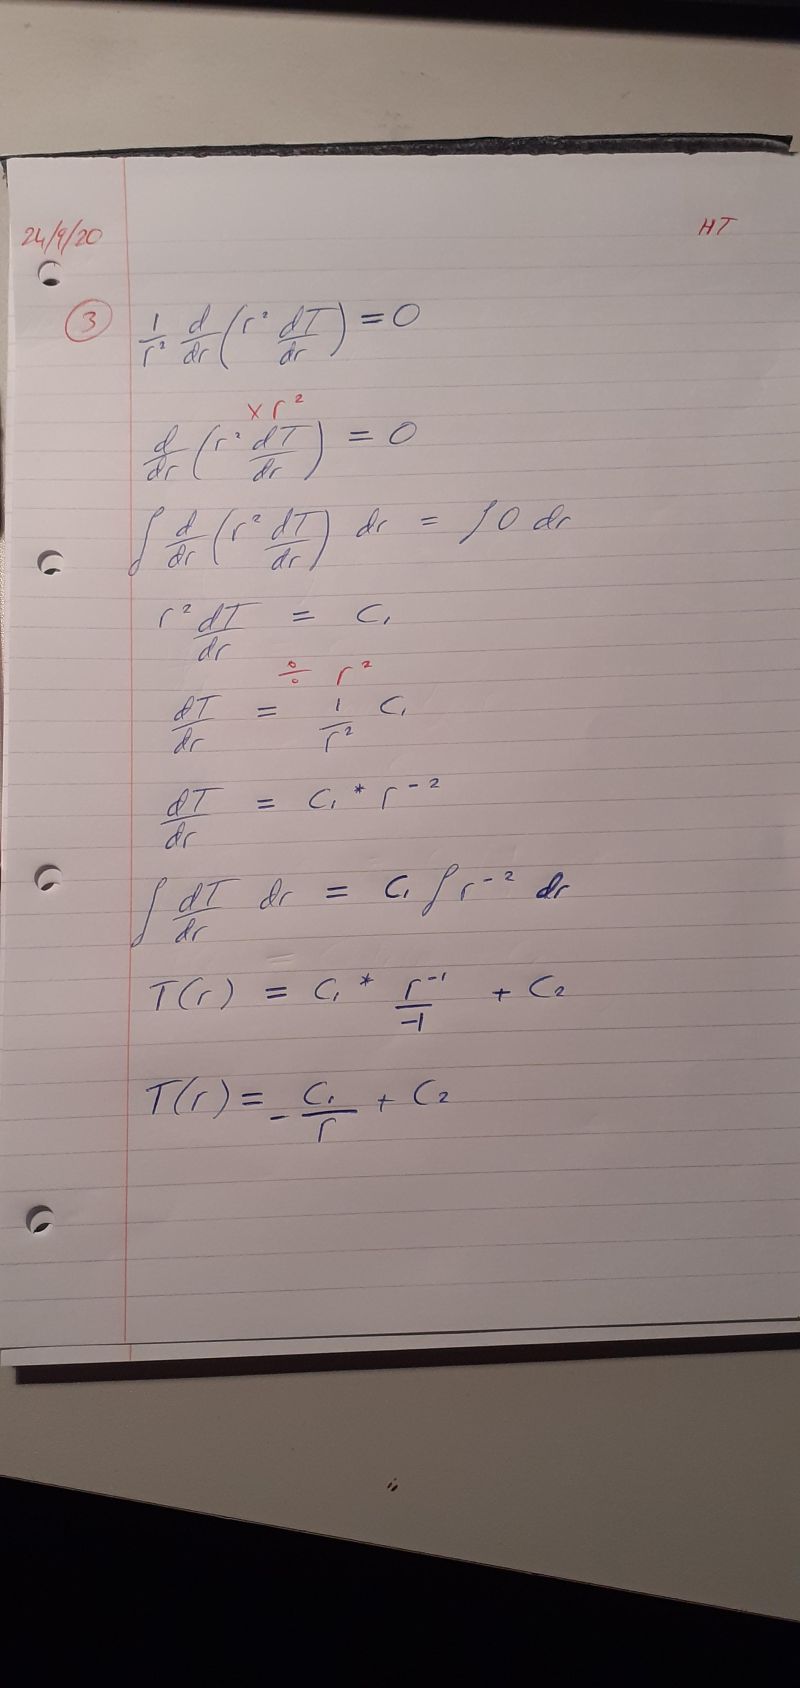 24/9/20 HT
③ 1/r² d/dr (r² dT/dr) = 0
× r²
d/dr (r² dT/dr) = 0
∫ d/dr (r² dT/dr) dr = ∫ 0 dr
r² dT/dr = C₁
÷ r²
dT/dr = 1/r² C₁
dT/dr = C₁ * r⁻²
∫ dT/dr dr = C₁ ∫ r⁻² dr
T(r) = C₁ * r⁻¹/-1 + C₂
T(r) = - C₁/r + C₂